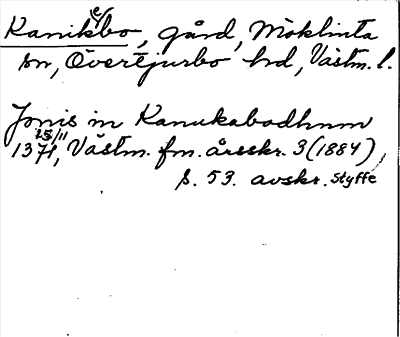 Kanikebo, gård, Möklinta
sn, Övertjurbo hd, Västm. l.
Jonis in Kanukabodhum
15/11
1371, Västm. fm. årsskr. 3 (1884),
s. 53. avskr. Styffe